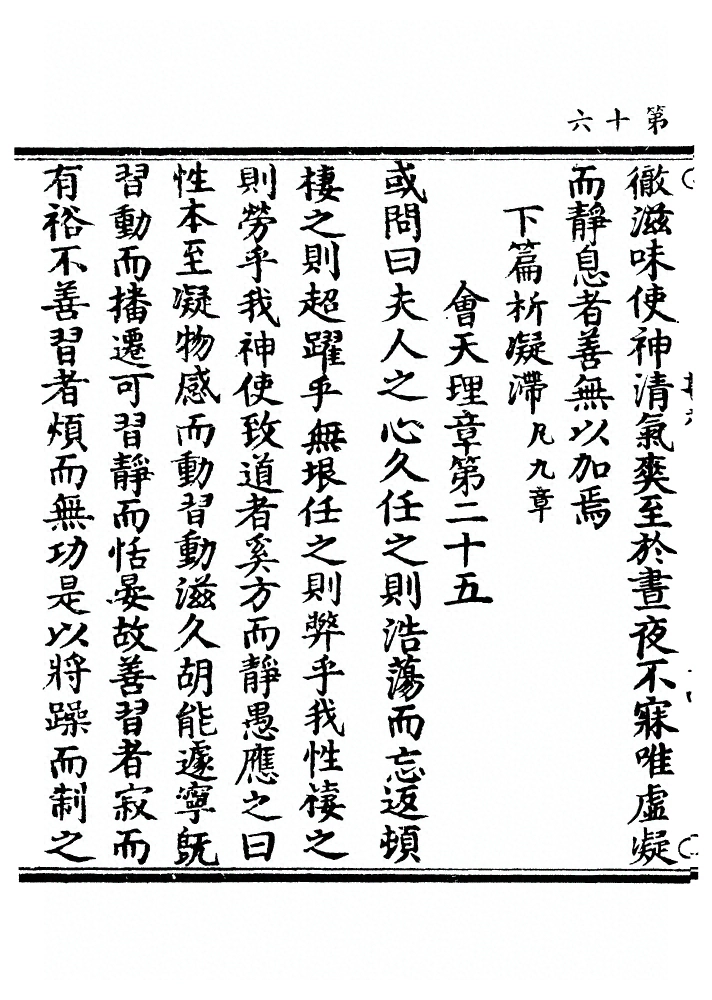 第十六
徹滋味使神清氣爽至於晝夜不寐唯虛凝
而靜息者善無以加焉
下篇析凝滯凡九章
會天理章第二十五
或問曰夫人之心久任之則浩蕩而忘返頓
棲之則超躍乎無垠任之則弊乎我性棲之
則勞乎我神使致道者奚方而靜愚應之曰
性本至凝物感而動習動滋久胡能遽寧既
習動而播遷可習靜而恬晏故善習者寂而
有裕不善習者煩而無功是以將躁而制之